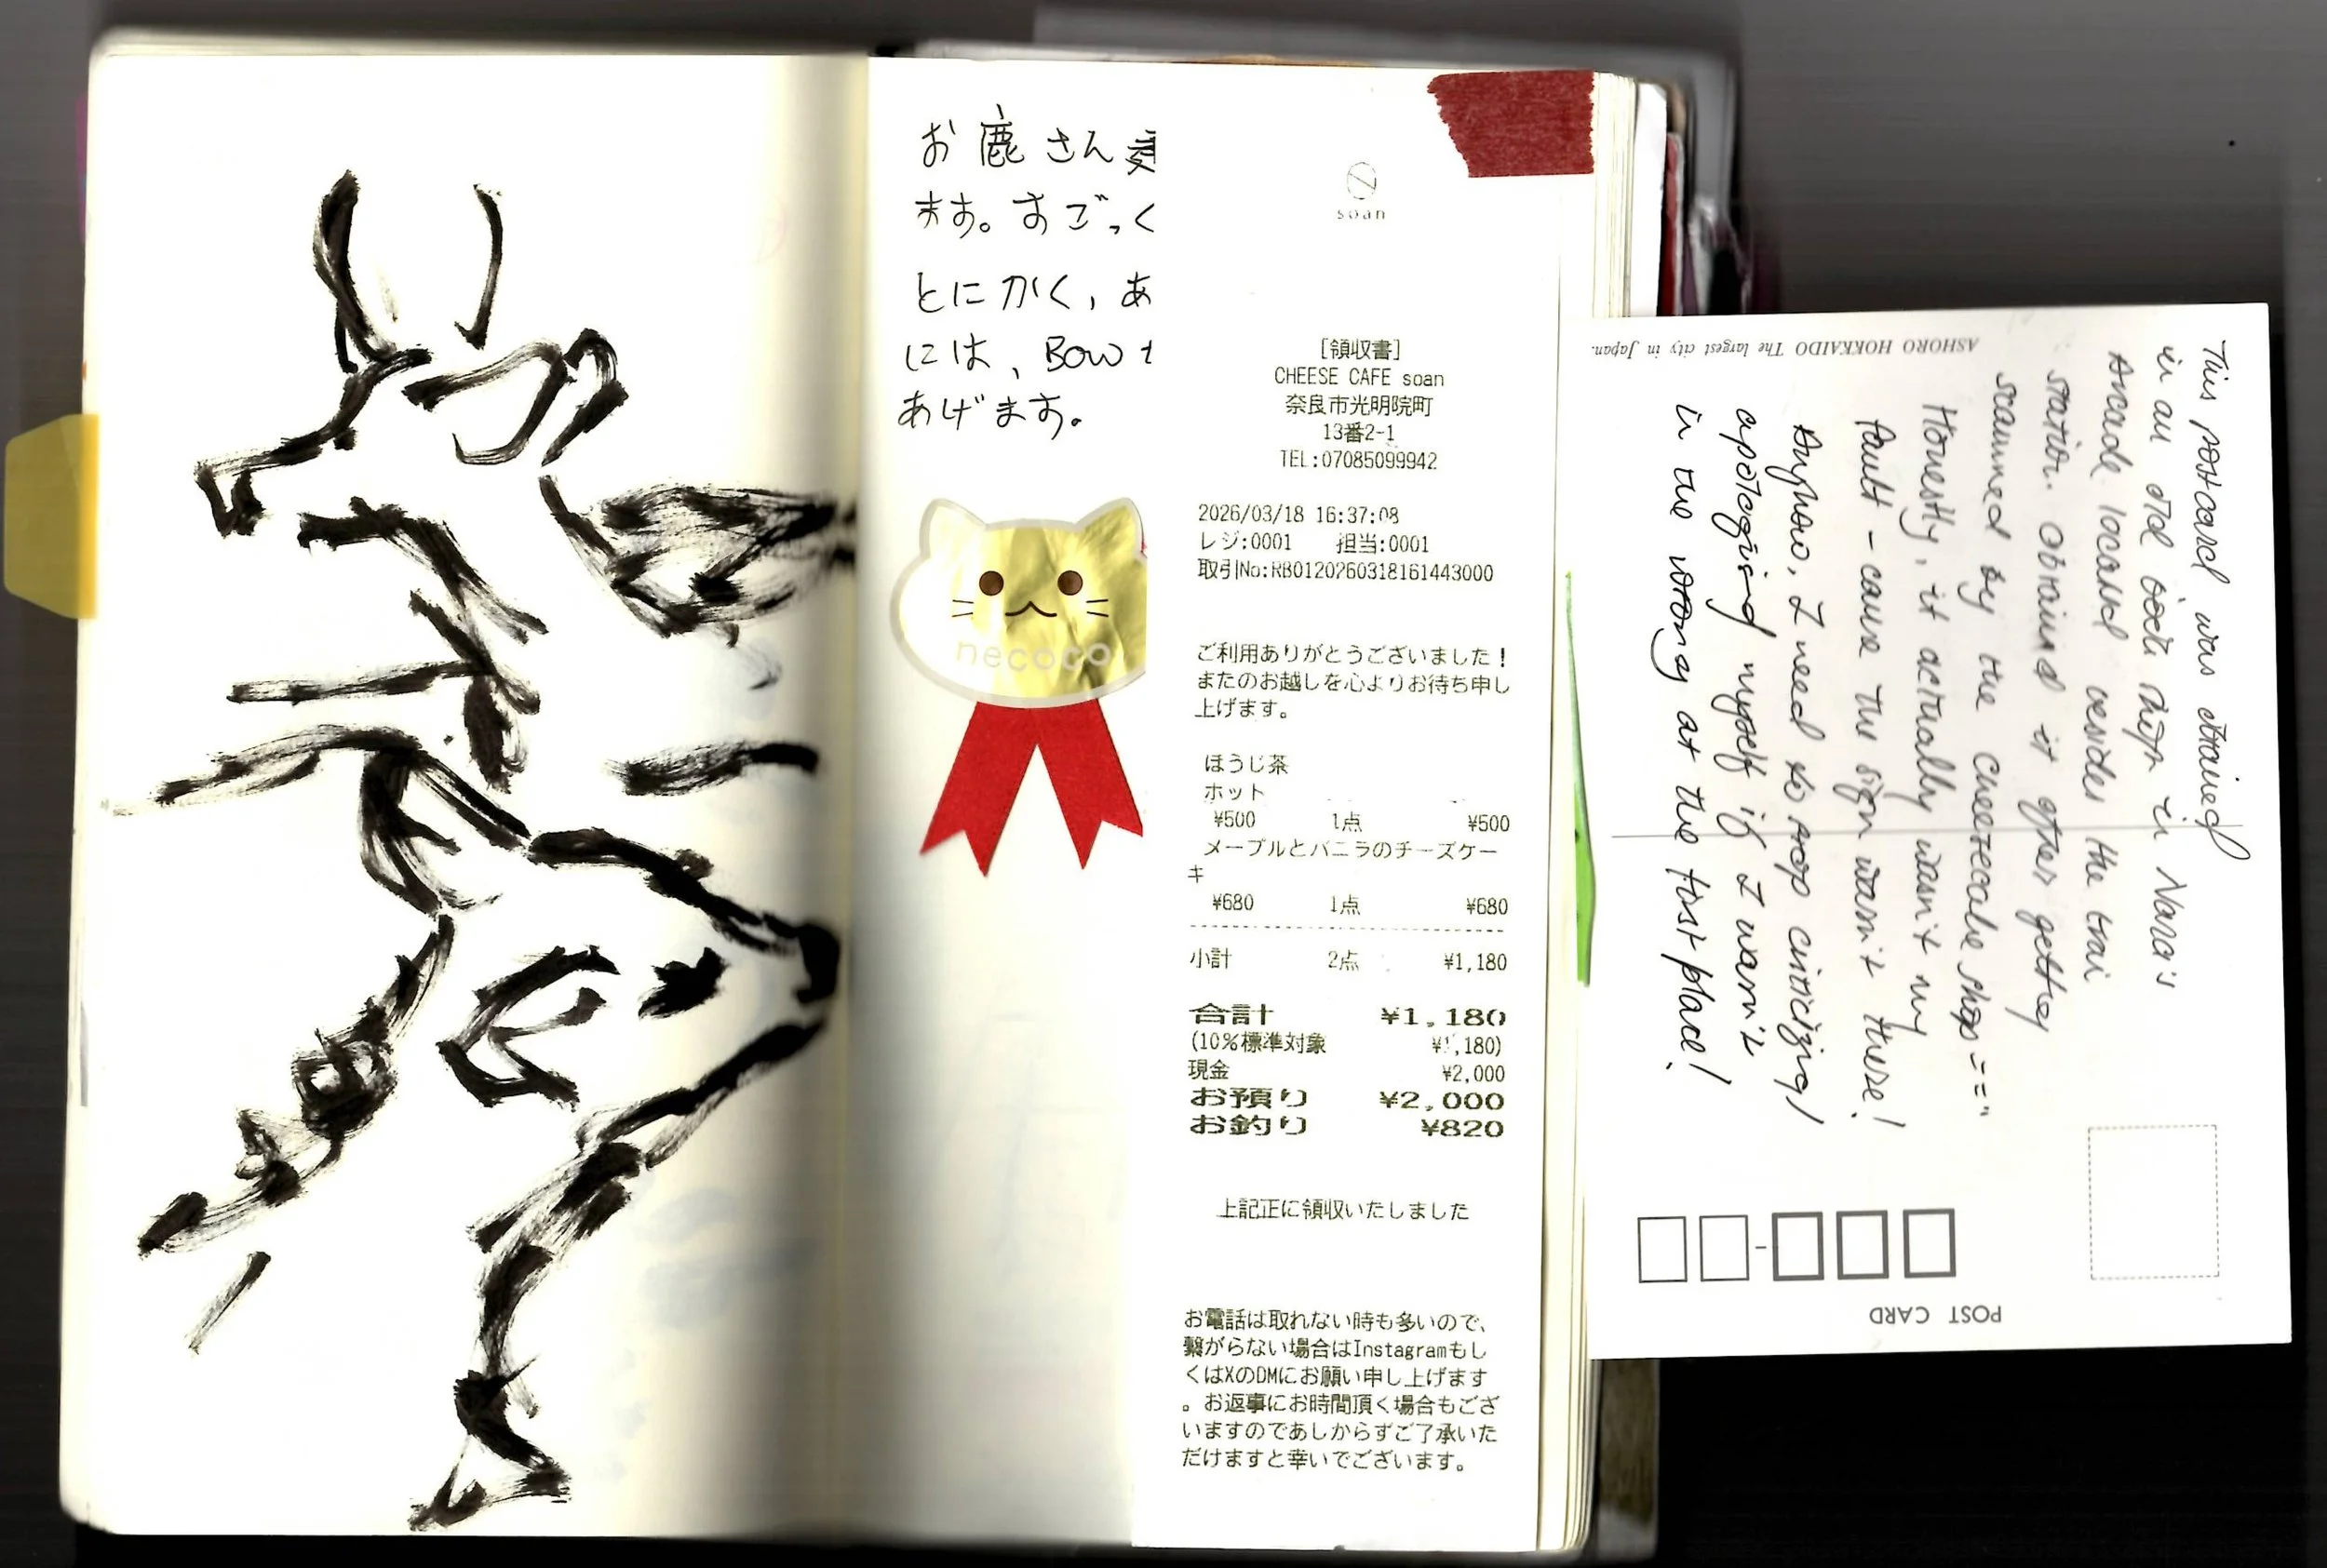 お鹿さん
ます。すごっく
とにかく, あ
には、Bow
あげます。
necoco
soan
[領収書]
CHEESE CAFE soan
奈良市光明院町
13番2-1
TEL:07085099942
2026/03/18 16:37:08
レジ:0001 担当:0001
取引No:RB0120260318161443000
ご利用ありがとうございました!
またのお越しを心よりお待ち申し
上げます。
ほうじ茶
ホット
¥500 1点 ¥500
メープルとバニラのチーズケー
キ
¥680 1点 ¥680
小計 2点 ¥1,180
合計 ¥1,180
(10%標準対象 ¥1,180)
現金 ¥2,000
お預り ¥2,000
お釣り ¥820
上記正に領収いたしました
お電話は取れない時も多いので、
繋がらない場合はInstagramもし
くはXのDMにお願い申し上げます
。お返事にお時間頂く場合もござ
いますのであしからずご了承いた
だけますと幸いでございます。
This postcard was obtained
in an old book shop in Nara's
Arcade located besides the trai
station. Obtained it after getting
scammed by the cheesecake shop =="
Honestly, it actually wasn't my
fault - cause the sign wasn't there!
Anyhow, I need to stop criticizing/
apologising myself if I wasn't
in the wrong at the first place!
ASHORO HOKKAIDO The largest city in Japan.
POST CARD